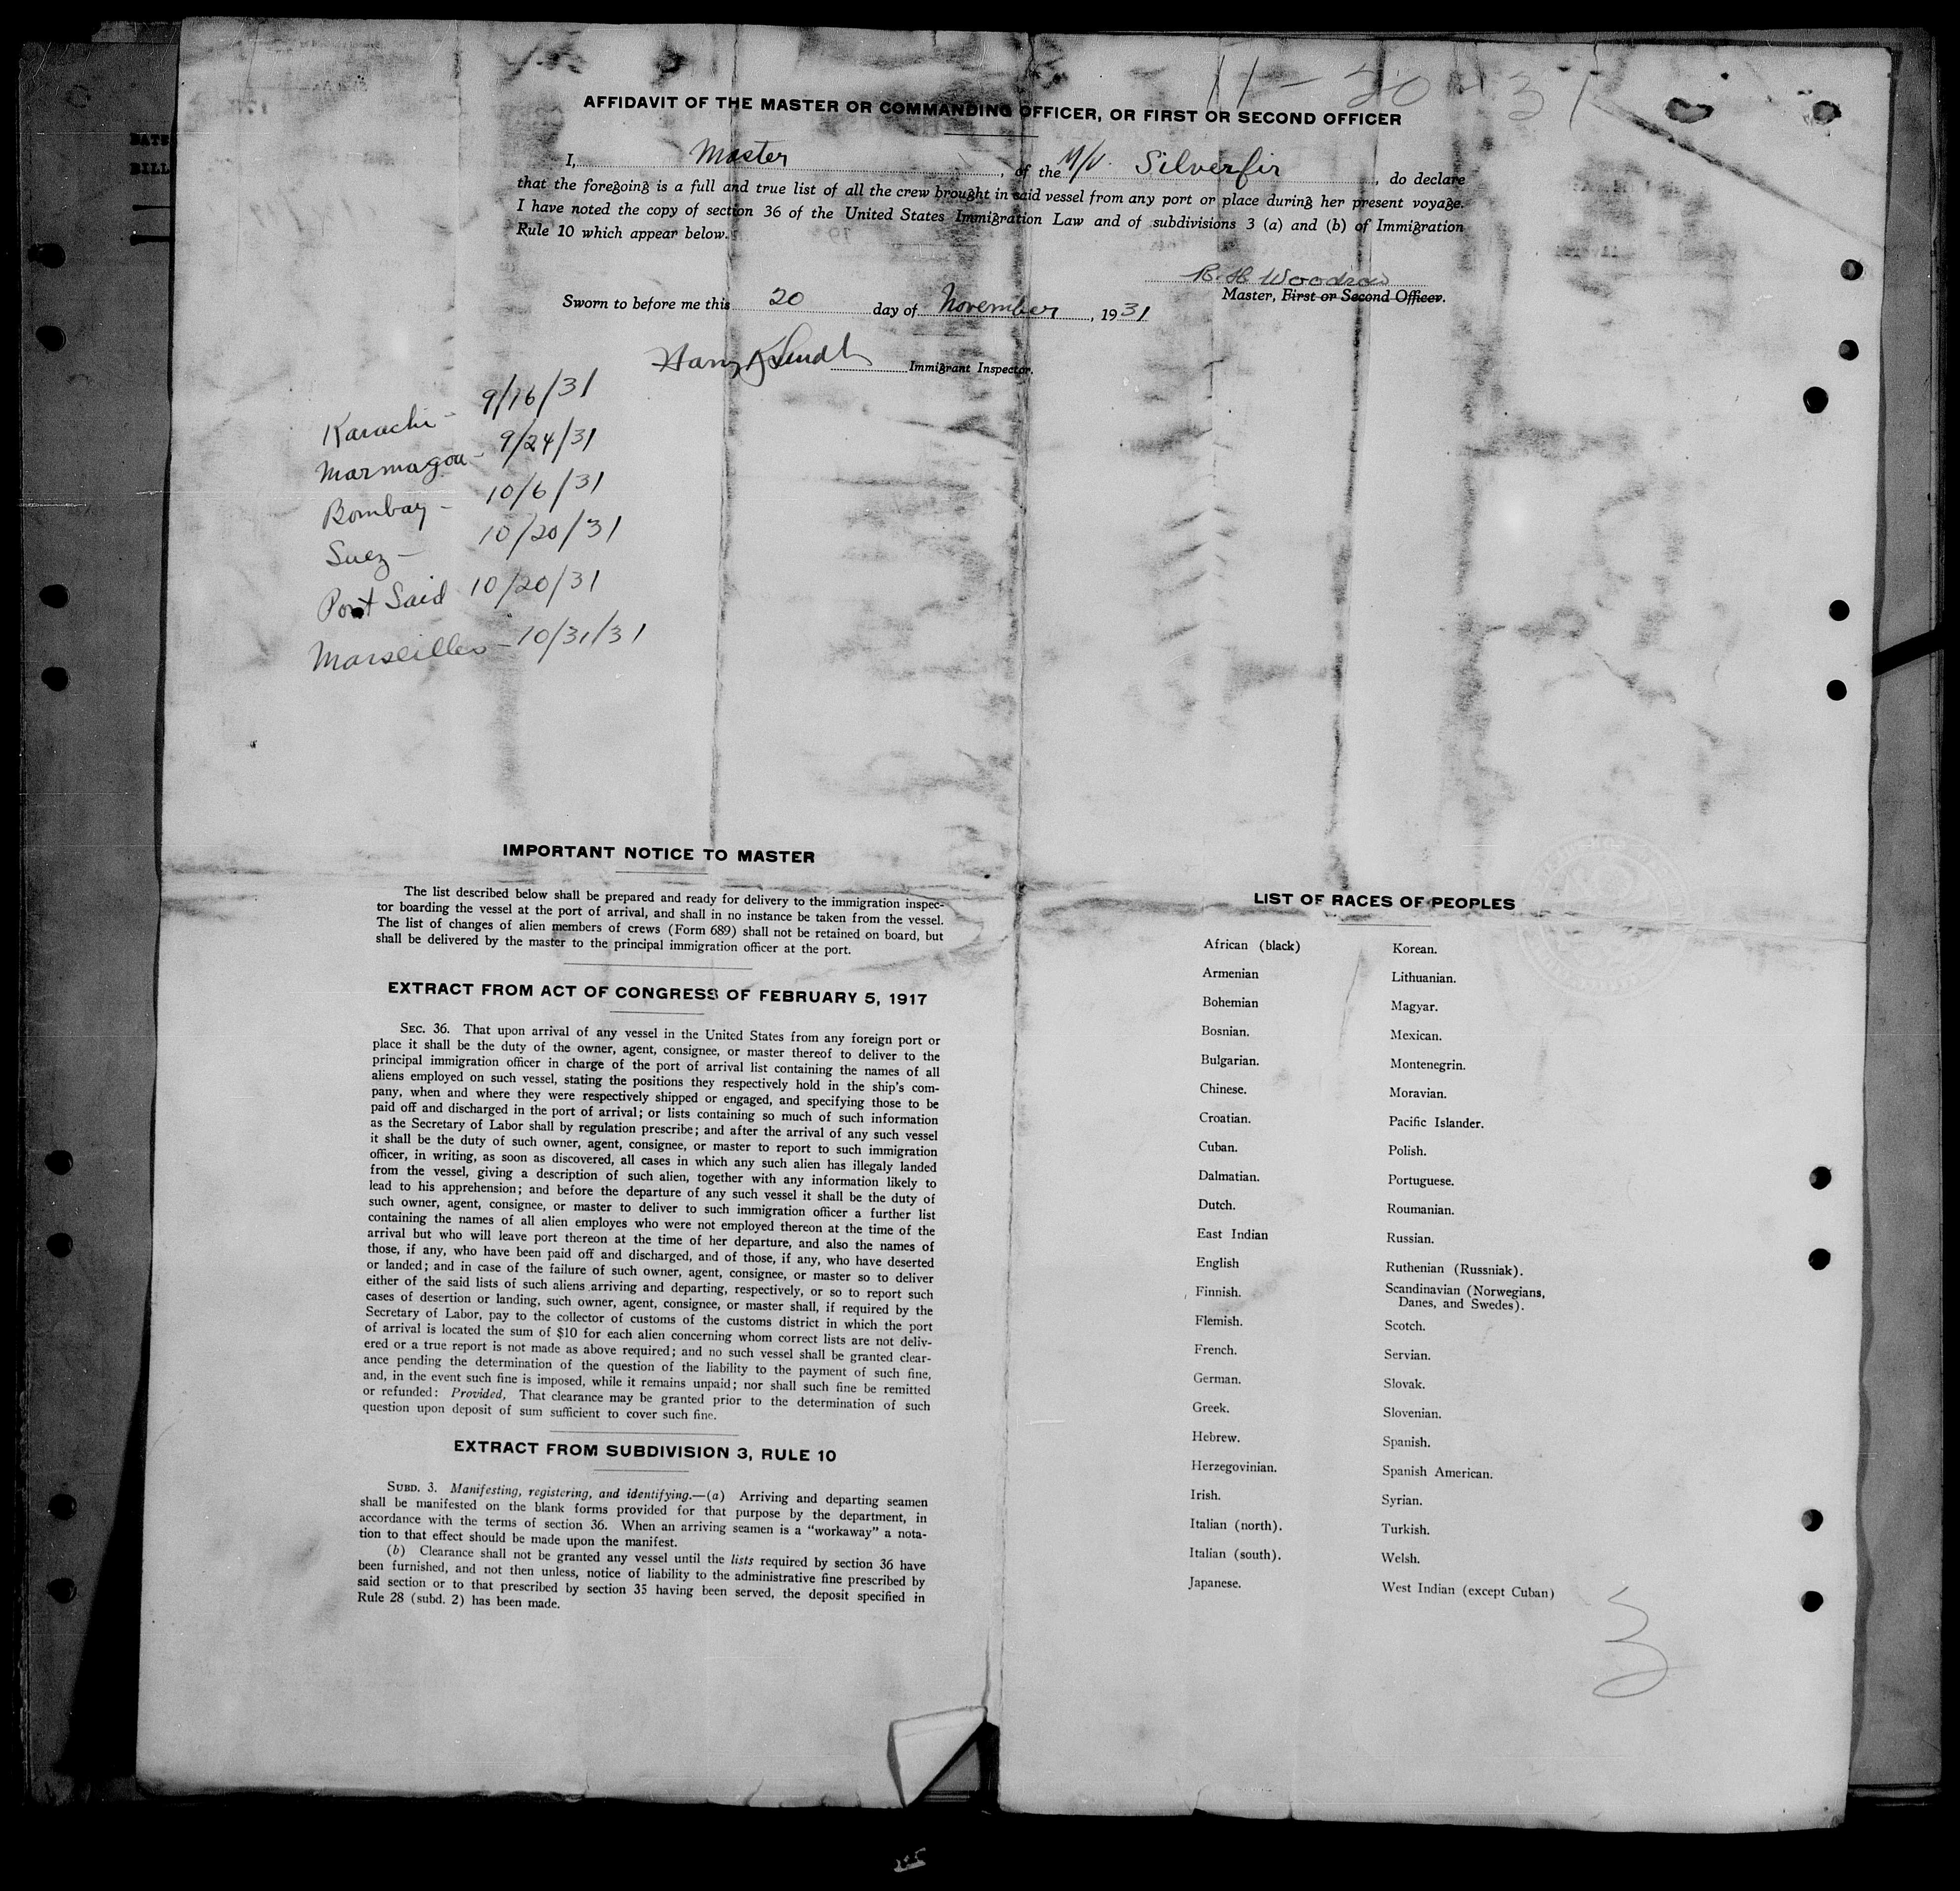 11-20-31
AFFIDAVIT OF THE MASTER OR COMMANDING OFFICER, OR FIRST OR SECOND OFFICER
I, Master, of the M/V. Silverfir, do declare
that the foregoing is a full and true list of all the crew brought in said vessel from any port or place during her present voyage.
I have noted the copy of section 36 of the United States Immigration Law and of subdivisions 3 (a) and (b) of Immigration
Rule 10 which appear below.
Master, First or Second Officer.
Sworn to before me this 20 day of November, 1931
Immigrant Inspector.
Karachi - 9/16/31
Marmagoa - 9/24/31
Bombay - 10/6/31
Suez - 10/20/31
Port Said 10/20/31
Marseilles - 10/31/31
IMPORTANT NOTICE TO MASTER
The list described below shall be prepared and ready for delivery to the immigration inspec-
tor boarding the vessel at the port of arrival, and shall in no instance be taken from the vessel.
The list of changes of alien members of crews (Form 689) shall not be retained on board, but
shall be delivered by the master to the principal immigration officer at the port.
EXTRACT FROM ACT OF CONGRESS OF FEBRUARY 5, 1917
SEC. 36. That upon arrival of any vessel in the United States from any foreign port or
place it shall be the duty of the owner, agent, consignee, or master thereof to deliver to the
principal immigration officer in charge of the port of arrival list containing the names of all
aliens employed on such vessel, stating the positions they respectively hold in the ship's com-
pany, when and where they were respectively shipped or engaged, and specifying those to be
paid off and discharged in the port of arrival; or lists containing so much of such information
as the Secretary of Labor shall by regulation prescribe; and after the arrival of any such vessel
it shall be the duty of such owner, agent, consignee, or master to report to such immigration
officer, in writing, as soon as discovered, all cases in which any such alien has illegaly landed
from the vessel, giving a description of such alien, together with any information likely to
lead to his apprehension; and before the departure of any such vessel it shall be the duty of
such owner, agent, consignee, or master to deliver to such immigration officer a further list
containing the names of all alien employes who were not employed thereon at the time of the
arrival but who will leave port thereon at the time of her departure, and also the names of
those, if any, who have been paid off and discharged, and of those, if any, who have deserted
or landed; and in case of the failure of such owner, agent, consignee, or master so to deliver
either of the said lists of such aliens arriving and departing, respectively, or so to report such
cases of desertion or landing, such owner, agent, consignee, or master shall, if required by the
Secretary of Labor, pay to the collector of customs of the customs district in which the port
of arrival is located the sum of $10 for each alien concerning whom correct lists are not deliv-
ered or a true report is not made as above required; and no such vessel shall be granted clear-
ance pending the determination of the question of the liability to the payment of such fine,
and, in the event such fine is imposed, while it remains unpaid; nor shall such fine be remitted
or refunded: Provided, That clearance may be granted prior to the determination of such
question upon deposit of sum sufficient to cover such fine.
EXTRACT FROM SUBDIVISION 3, RULE 10
SUBD. 3. Manifesting, registering, and identifying.—(a) Arriving and departing seamen
shall be manifested on the blank forms provided for that purpose by the department, in
accordance with the terms of section 36. When an arriving seamen is a "workaway" a nota-
tion to that effect should be made upon the manifest.
(b) Clearance shall not be granted any vessel until the lists required by section 36 have
been furnished, and not then unless, notice of liability to the administrative fine prescribed by
said section or to that prescribed by section 35 having been served, the deposit specified in
Rule 28 (subd. 2) has been made.
LIST OF RACES OF PEOPLES
African (black)
Armenian
Bohemian
Bosnian.
Bulgarian.
Chinese.
Croatian.
Cuban.
Dalmatian.
Dutch.
East Indian
English
Finnish.
Flemish.
French.
German.
Greek.
Hebrew.
Herzegovinian.
Irish.
Italian (north).
Italian (south).
Japanese.
Korean.
Lithuanian.
Magyar.
Mexican.
Montenegrin.
Moravian.
Pacific Islander.
Polish.
Portuguese.
Roumanian.
Russian.
Ruthenian (Russniak).
Scandinavian (Norwegians,
Danes, and Swedes).
Scotch.
Servian.
Slovak.
Slovenian.
Spanish.
Spanish American.
Syrian.
Turkish.
Welsh.
West Indian (except Cuban)
3